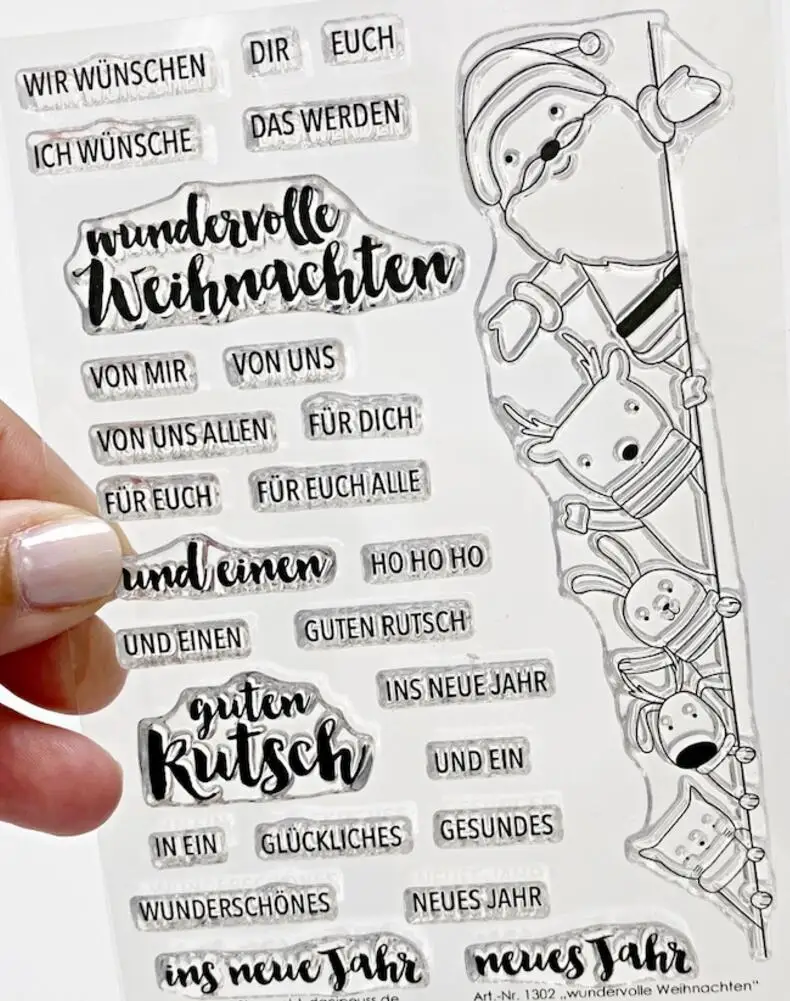 WIR WÜNSCHEN DIR EUCH
ICH WÜNSCHE DAS WERDEN
wundervolle
Weihnachten
VON MIR VON UNS
VON UNS ALLEN FÜR DICH
FÜR EUCH FÜR EUCH ALLE
und einen HO HO HO
UND EINEN GUTEN RUTSCH
guten
Rutsch
INS NEUE JAHR
UND EIN
IN EIN GLÜCKLICHES GESUNDES
WUNDERSCHÖNES NEUES JAHR
ins neue Jahr neues Jahr
Art.-Nr. 1302 „wundervolle Weihnachten"